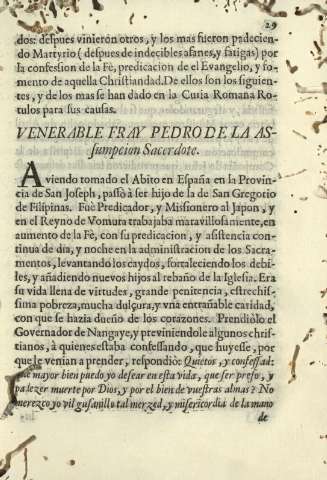 29
dos: despues vinieron otros, y los mas fueron padecien
do Martyrio (despues de indecibles afanes, y fatigas) por
la confession de la Fè, predicacion de el Evangelio, y fo-
mento de aquella Christiandad. De ellos son los siguien-
tes, y de los mas se han dado en la Curia Romana Ro-
tulos para sus causas.
VENERABLE FRAY PEDRO DE LA AS-
sumpcion Sacerdote.
Aviendo tomado el Abito en España en la Provin-
cia de San Joseph, passò à ser hijo de la de San Gregorio
de Filipinas. Fuè Predicador, y Missionero al Japon, y
en el Reyno de Vomura trabajaba maravillosamente, en
aumento de la Fè, con su predicacion, y asistencia con
tinua de dia, y noche en la administracion de los Sacra-
mentos, levantando los caydos, fortaleciendo los debi-
les, y añadiendo nuevos hijos al rebaño de la Iglesia. Era
su vida llena de virtudes, grande penitencia, estrechis-
sima pobreza, mucha dulçura, y vna entrañable caridad,
con que se hazia dueño de los corazones. Prendiòlo el
Governador de Nangaye, y previniendole algunos chris-
tianos, à quienes estaba confessando, que huyesse, por
que le venian a prender, respondiò: Quietos, y confessad:
què mayor bien puedo yo desear en esta vida, que ser preso, y
padezer muerte por Dios, y por el bien de vuestras almas? No
merezco yo vil gusanillo tal merzed, y misericordia de la mano
de